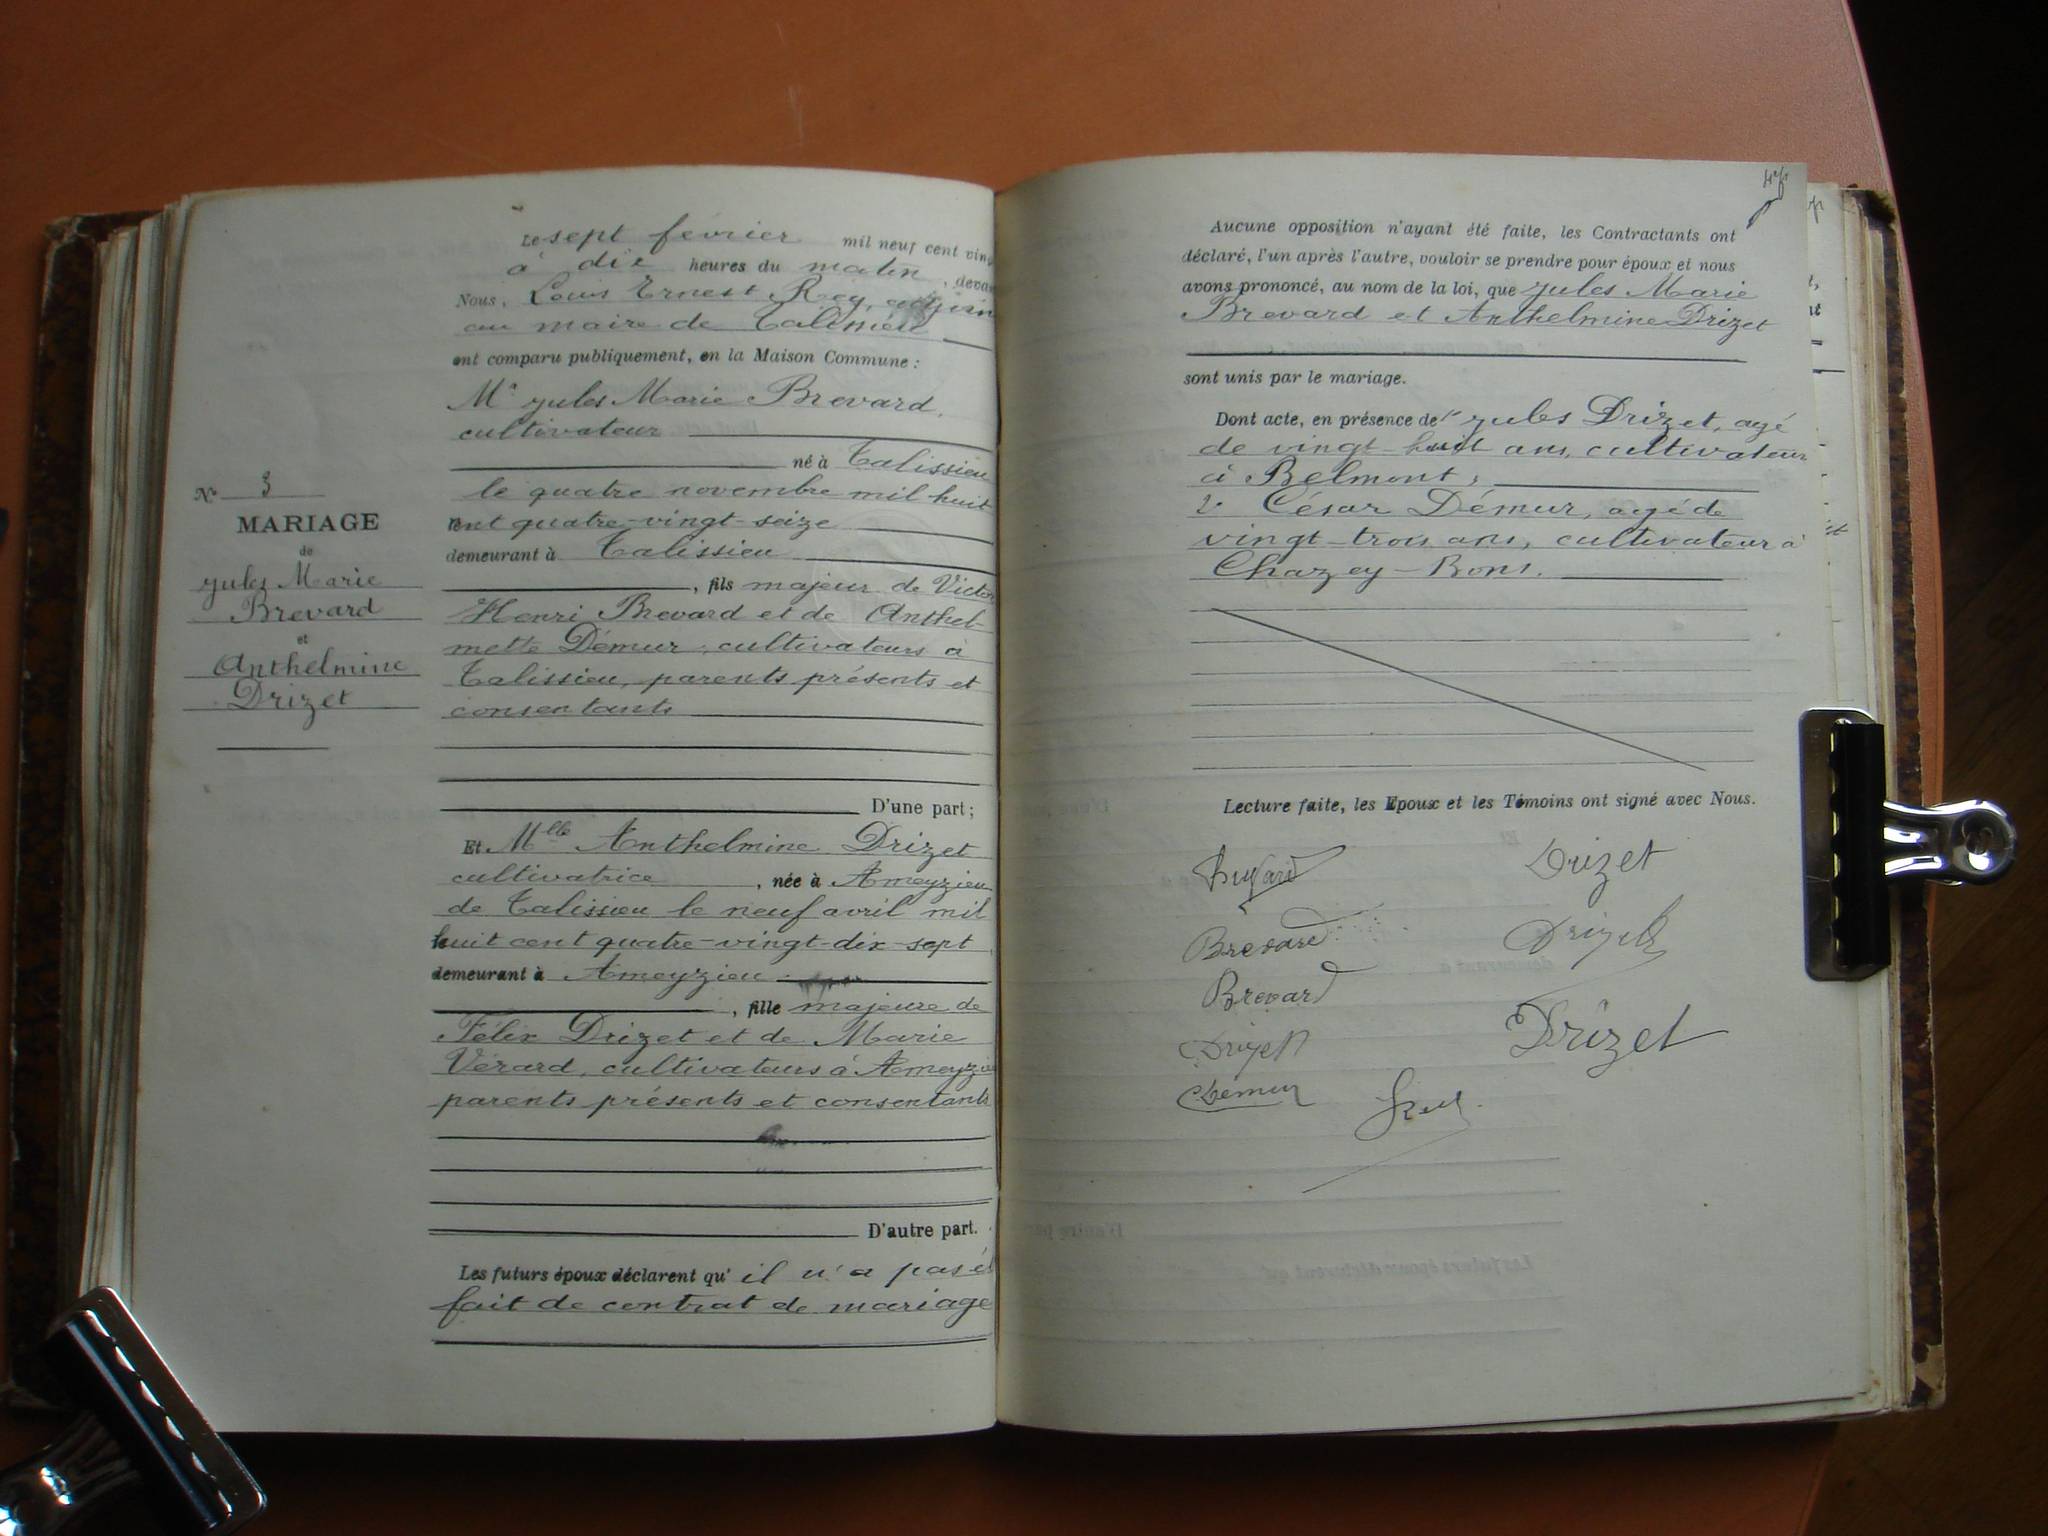 N° 3
MARIAGE
de
Jules Marie
Brevard
et
Anthelmine
Drizet
Le sept février mil neuf cent vin
à dix heures du matin, deva
Nous, Louis Ernest Rey, adjoin
au maire de Talissieu
ont comparu publiquement, en la Maison Commune :
Mr Jules Marie Brevard,
cultivateur
né à Talissieu
le quatre novembre mil huit
cent quatre-vingt-seize
demeurant à Talissieu
, fils majeur de Victor
Henri Brevard et de Anthel-
mette Démur, cultivateurs à
Talissieu, parents présents et
consentants
D'une part ;
Et Mlle Anthelmine Drizet
cultivatrice, née à Ameyzieu
de Talissieu le neuf avril mil
huit cent quatre-vingt-dix-sept
demeurant à Ameyzieu
, fille majeure de
Félix Drizet et de Marie
Vérard, cultivateurs à Ameyzie
parents présents et consentants
D'autre part.
Les futurs époux déclarent qu' il n'a pas é
fait de contrat de mariage
Aucune opposition n'ayant été faite, les Contractants ont
déclaré, l'un après l'autre, vouloir se prendre pour époux et nous
avons prononcé, au nom de la loi, que Jules Marie
Brevard et Anthelmine Drizet
sont unis par le mariage.
Dont acte, en présence de 1° Jules Drizet, agé
de vingt-huit ans, cultivateur
à Belmont ;
2° César Démur, agé de
vingt-trois ans, cultivateur à
Chazey-Bons.
Lecture faite, les Epoux et les Témoins ont signé avec Nous.
Drizet
Brevard
Drizet
Brevard
Drizet
Drizet
Démur